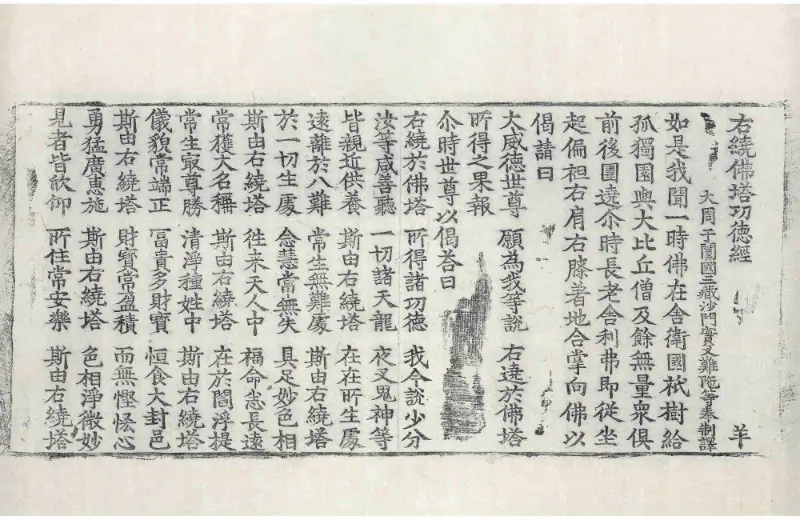 右繞佛塔功德經 羊
大周于闐國三藏沙門實叉難陁等奉制譯
如是我聞一時佛在舍衛國祇樹給
孤獨園與大比丘僧及餘無量衆俱
前後圍遶尒時長老舍利弗即從坐
起偏袒右肩右膝著地合掌向佛以
偈請曰
大威德世尊 願為我等說 右遶於佛塔
所得之果報
尒時世尊以偈荅曰
右繞於佛塔 所得諸功德 我今說少分
汝等咸善聽 一切諸天龍 夜叉鬼神等
皆親近供養 斯由右繞塔 在在所生處
遠離於八難 常生無難處 斯由右繞塔
於一切生處 念慧常無失 具足妙色相
斯由右繞塔 往來天人中 福命悉長遠
常獲大名稱 斯由右繞塔 在於閻浮提
常生㝡尊勝 清淨種姓中 斯由右繞塔
儀貌常端正 冨貴多財寶 恒食大封邑
斯由右繞塔 財寶常盈積 而無慳悋心
勇猛廣惠施 斯由右繞塔 色相淨微妙
見者皆欣仰 所住常安樂 斯由右繞塔